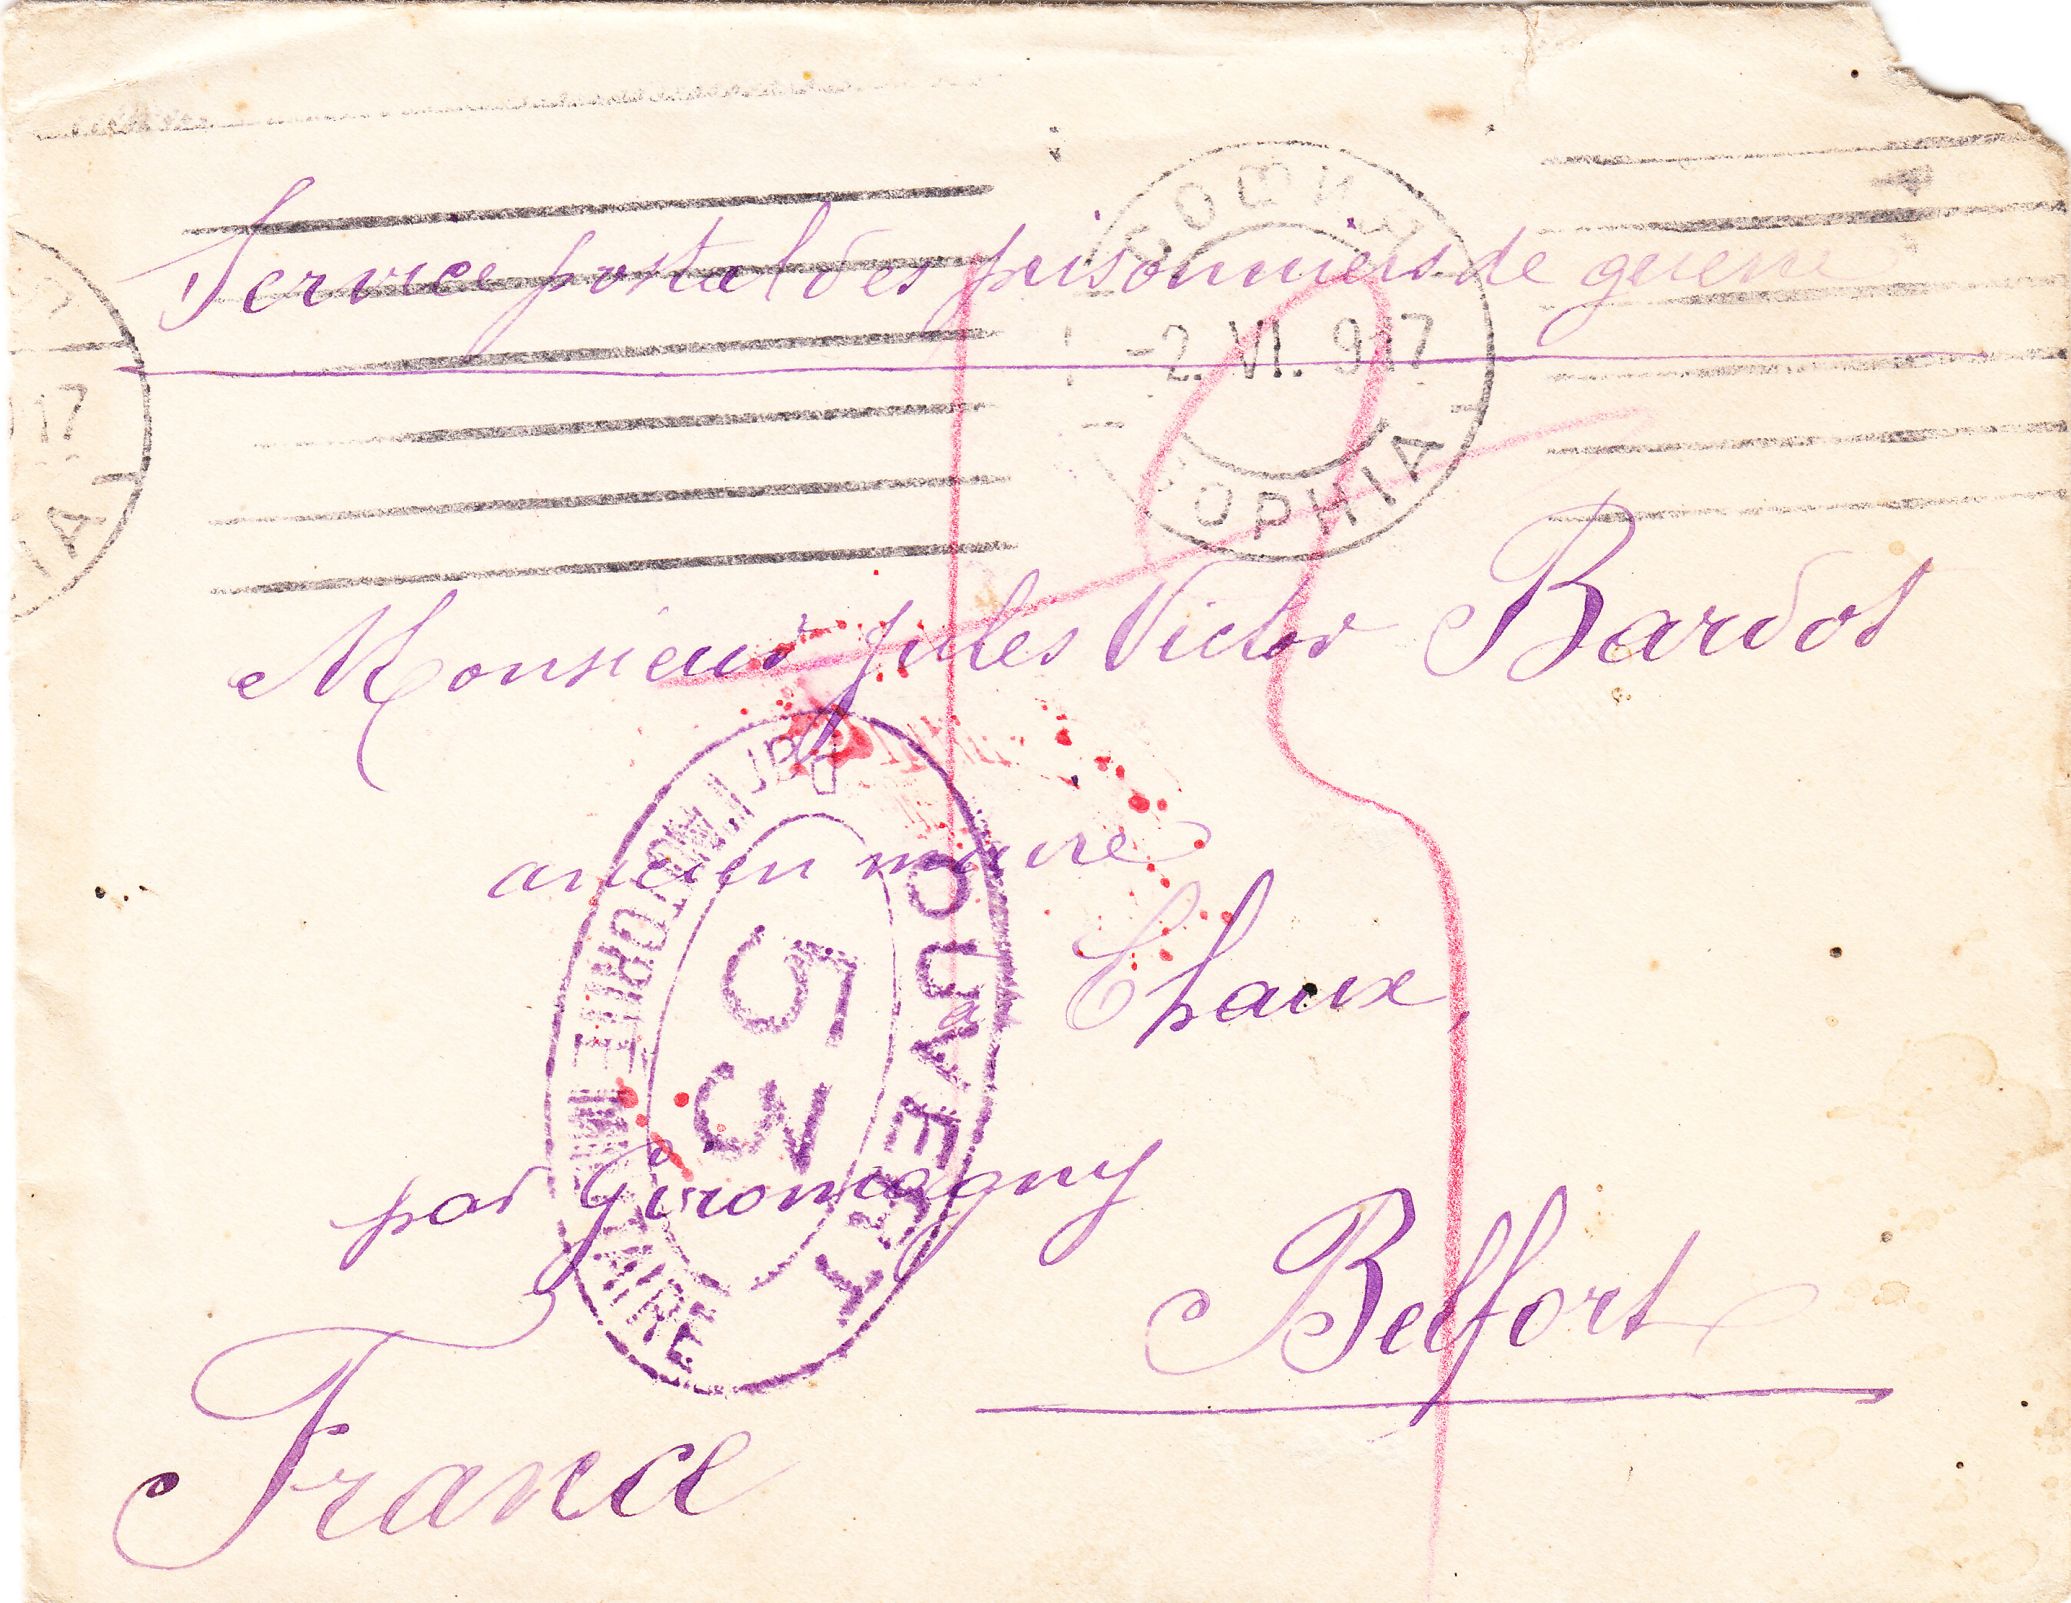 СОФИЯ
Service postal des prisonniers de guerre
-2. VI. 917
17
SOPHIA
IA
Monsieur Jules Victor Bardot
ancien maire
à Chaux,
OUVERT
PAR L'AUTORITE MILITAIRE
35
par Giromagny
Belfort
France